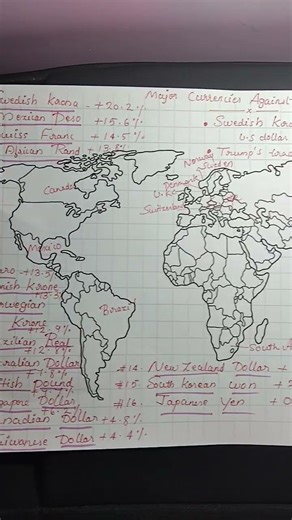 wedish Krona - +20.2%
Mexican Peso +15.6%
wiss Franc +14.5%
African Rand +13.8%
Major Currencies Against
Swedish Kro
U.S dollar
Trump's
Norway
Sweden
Denmark
U.K
Switzerland
Canada
Mexico
Brazil
South A
+13.5
nish Krone
+13.3
rwegian
Krone
zilian Real
ralian Dollar
tish Pound
apore Dollar
anadian Dollar +4.8%
aiwanese Dollar +4.4%
#14. New Zealand Dollar +
#15. South Korean won +2
#16. Japanese Yen + 0